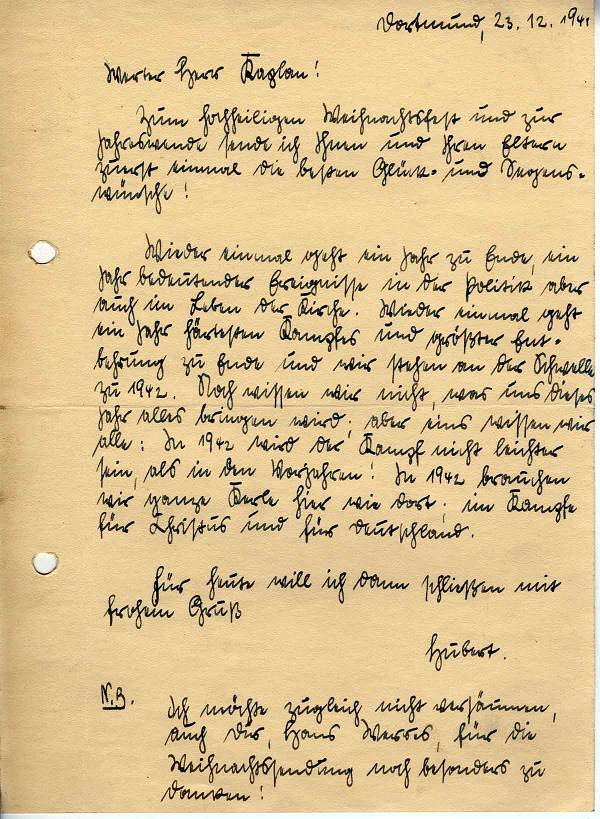 Dortmund, 23. 12. 1941
Werter Herr Kaplan!
Zum hochheiligen Weihnachtsfest und zur
Jahreswende sende ich Ihnen und Ihren Eltern
zuerst einmal die besten Glück- und Segens-
wünsche!
Wieder einmal geht ein Jahr zu Ende, ein
Jahr bedeutender Ereignisse in der Politik aber
auch im Leben der Kirche. Wieder einmal geht
ein Jahr härtesten Kampfes und größter Ent-
behrung zu Ende und wir stehen an der Schwelle
zu 1942. Noch wissen wir nicht, was uns dieses
Jahr alles bringen wird, aber eins wissen wir
alle: In 1942 wird der Kampf nicht leichter
sein, als in den Vorjahren! In 1942 brauchen
wir ganze Kerle hier wie dort, im Kampfe
für Christus und für Deutschland.
Für heute will ich dann schließen mit
frohem Gruß
Hubert.
N.B.
Ich möchte zugleich nicht versäumen,
auch Dir, Hans für die
Weihnachtssendung noch besonders zu
danken!